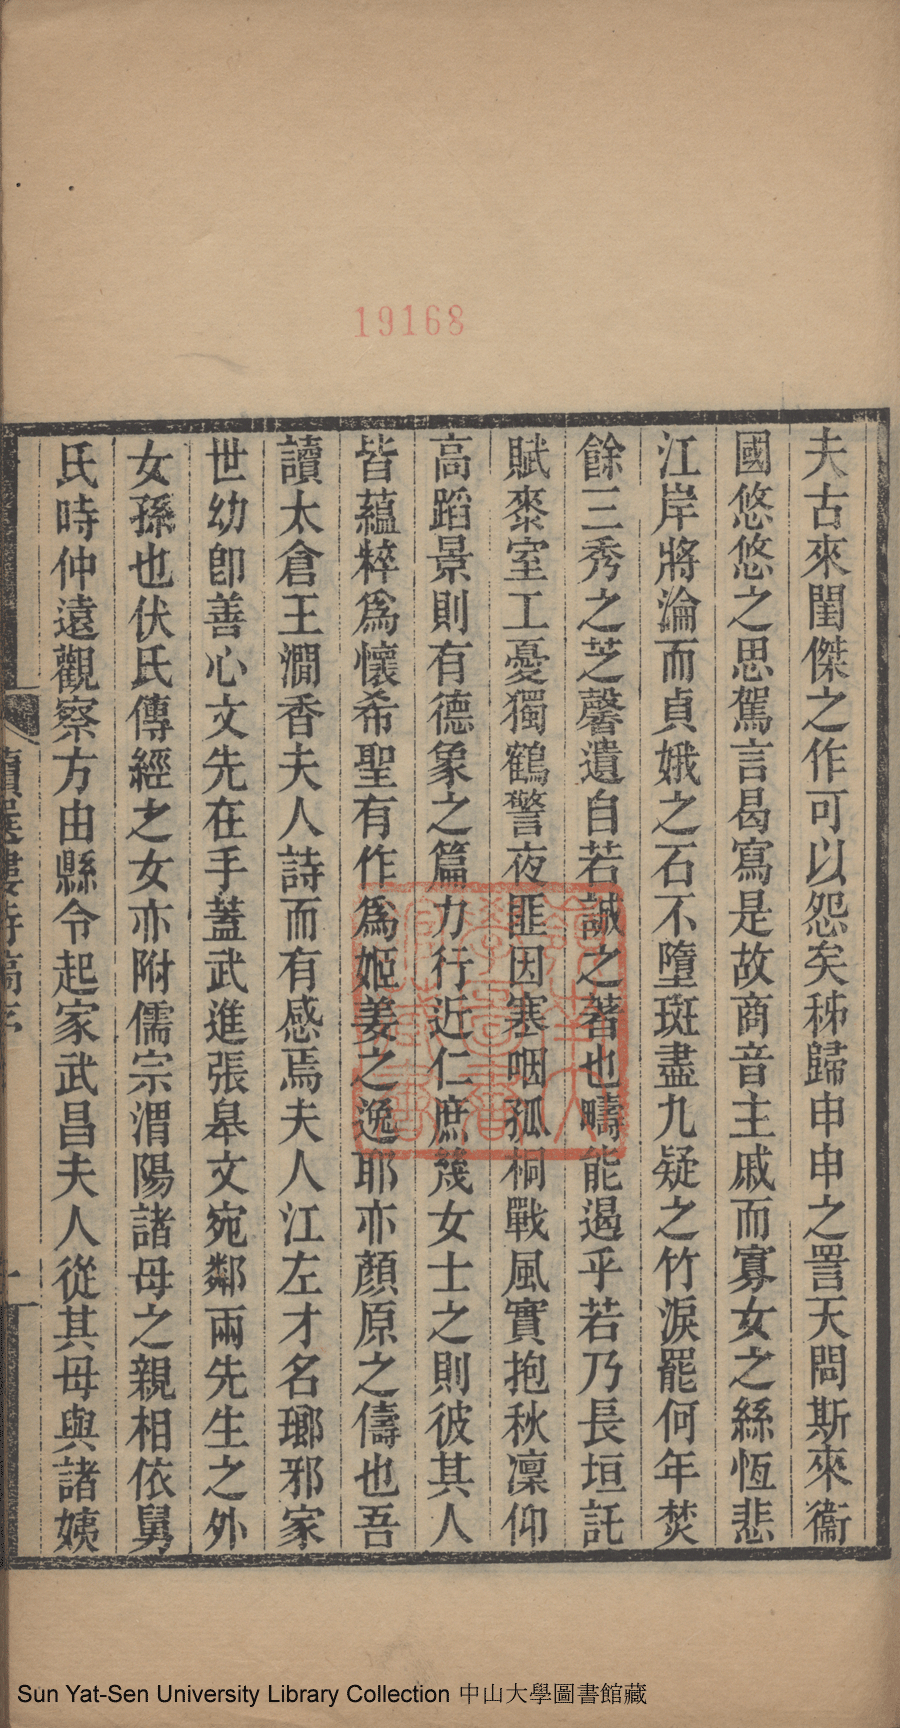 19168
夫古來閨傑之作可以怨矣秭歸申申之詈天問斯來衞
國悠悠之思駕言曷寫是故商音主戚而寡女之絲恆悲
江岸將淪而貞娥之石不墮斑盡九疑之竹淚罷何年焚
餘三秀之芝馨遺自若誠之著也疇能遏乎若乃長垣託
賦桼室工憂獨鶴警夜匪因塞咽孤桐戰風實抱秋凜仰
高蹈景則有德象之篇力行近仁庶蔑女士之則彼其人
皆蘊粹爲懷希聖有作爲姬姜之逸耶亦顏原之儔也吾
讀太倉王澗香夫人詩而有感焉夫人江左才名瑯邪家
世幼卽善心文先在手蓋武進張皋文宛鄰兩先生之外
女孫也伏氏傳經之女亦附儒宗渭陽諸母之親相依舅
氏時仲遠觀察方由縣令起家武昌夫人從其母與諸姨
讀選樓詩稿序
一
Sun Yat-Sen University Library Collection 中山大學圖書館藏